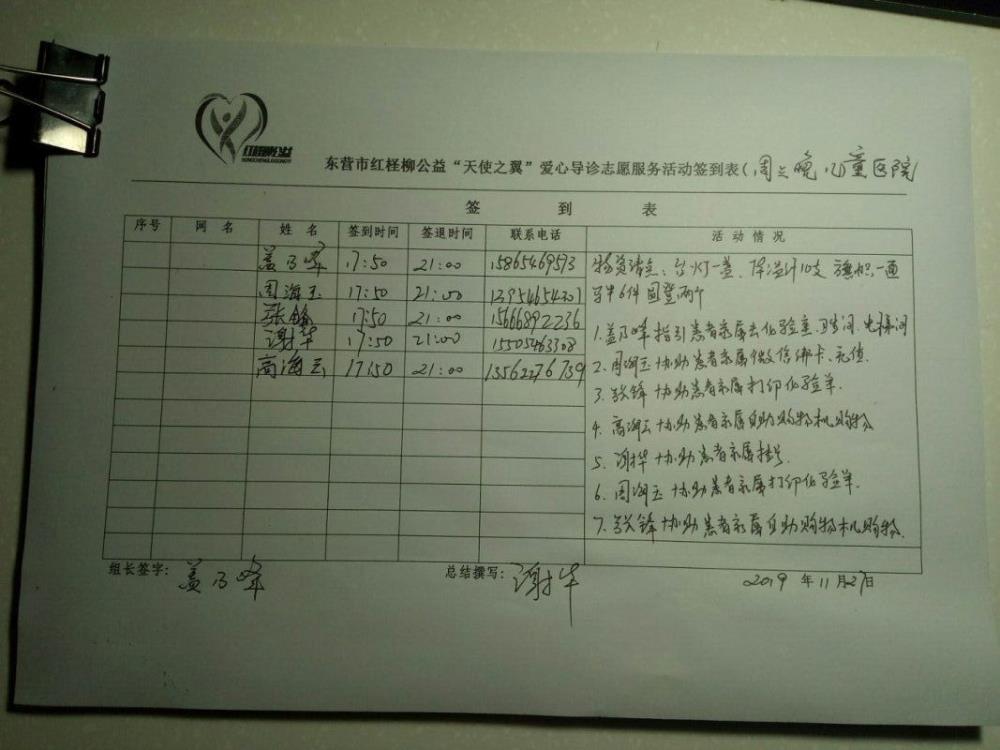 红柽柳公益
东营市红柽柳公益“天使之翼”爱心导诊志愿服务活动签到表(周三晚 儿童医院
签 到 表
序号 网 名 姓 名 签到时间 签退时间 联系电话 活 动 情 况
盖乃峰 17:50 21:00 15865469573
周海玉 17:50 21:00
张锋 17:50 21:00 15666892236
谢华 17:50 21:00 15505463308
高海云 17:50 21:00 13562276739
物资清点:台灯一盏、体温计10支 旗帜一面
马甲6件 圆凳两个
1.盖乃峰指引患者家属去化验室、卫生间、电梯间
2、周海玉协助患者家属微信绑卡、充值.
3、张锋协助患者家属打印化验单.
4、高海云协助患者家属自助购物机购物
5、谢华协助患者家属挂号.
6、周海玉协助患者家属打印化验单.
7、张锋协助患者家属自助购物机购物.
组长签字: 盖乃峰 总结撰写: 谢华 2019 年 11月27日